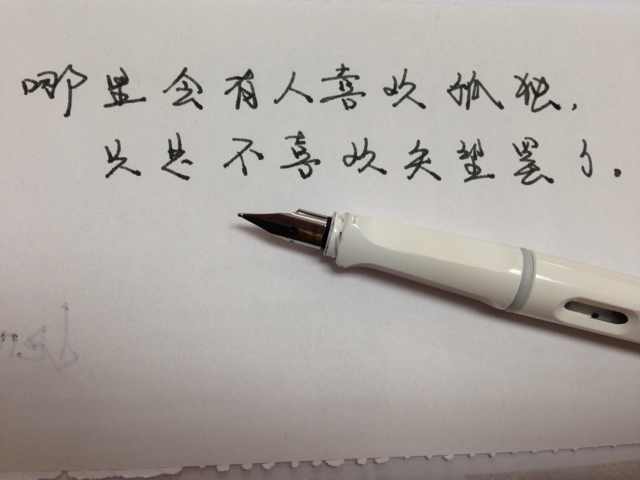 哪里会有人喜欢孤独，
只是不喜欢失望罢了．